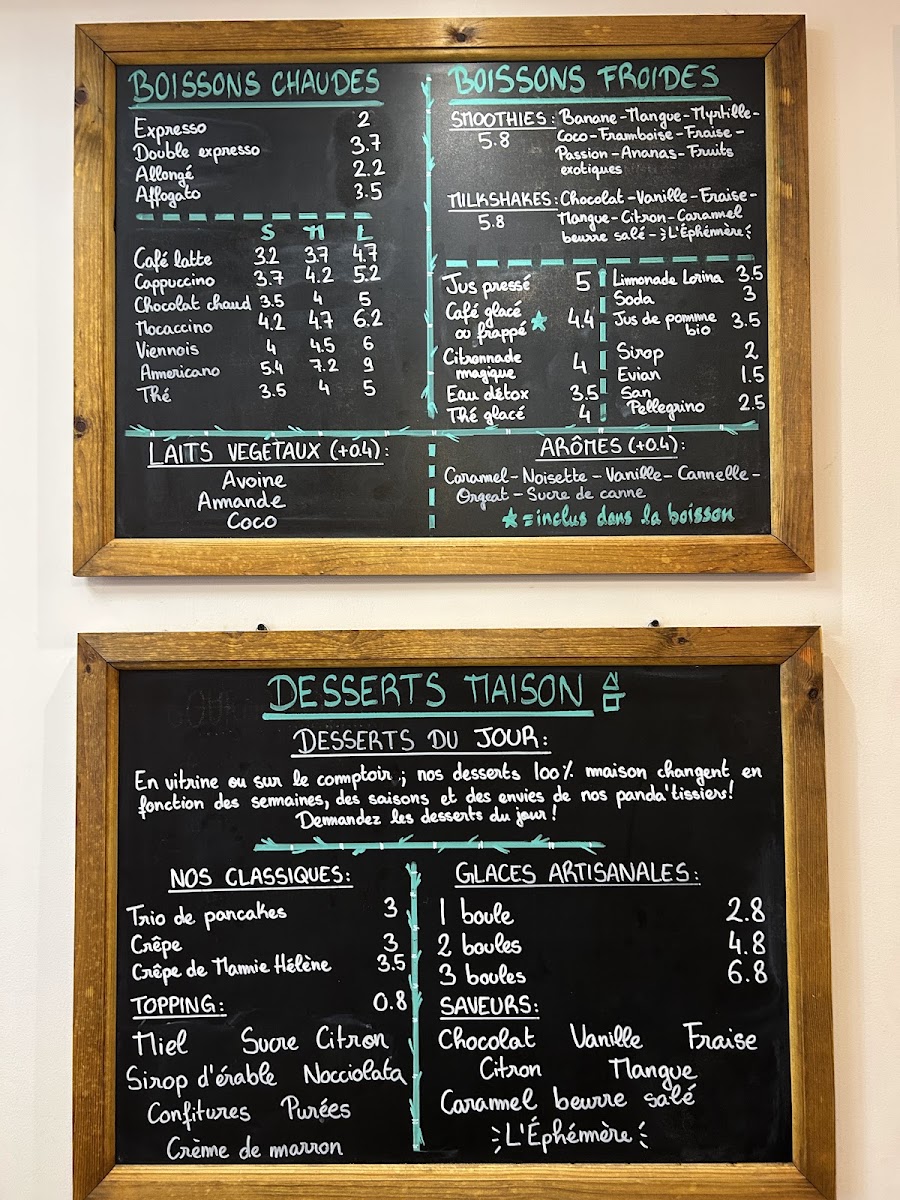 BOISSONS CHAUDES
Expresso 2
Double expresso 3.7
Allongé 2.2
Affogato 3.5
S M L
Café latte 3.2 3.7 4.7
Cappuccino 3.7 4.2 5.2
Chocolat chaud 3.5 4 5
Mocaccino 4.2 4.7 6.2
Viennois 4 4.5 6
Americano 5.4 7.2 9
Thé 3.5 4 5
LAITS VEGETAUX (+0.4):
Avoine
Amande
Coco
BOISSONS FROIDES
SMOOTHIES: Banane - Mangue - Myrtille -
5.8 Coco - Framboise - Fraise -
Passion - Ananas - Fruits
exotiques
MILKSHAKES: Chocolat - Vanille - Fraise -
5.8 Mangue - Citron - Caramel
beurre salé - L'Éphémère
Jus pressé 5
Café glacé
ou frappé ★ 4.4
Citronnade
magique 4
Eau détox 3.5
Thé glacé 4
Limonade Lorina 3.5
Soda 3
Jus de pomme
bio 3.5
Sirop 2
Evian 1.5
San
Pellegrino 2.5
ARÔMES (+0.4):
Caramel - Noisette - Vanille - Cannelle -
Orgeat - Sucre de canne
★ = inclus dans la boisson
DESSERTS MAISON
DESSERTS DU JOUR:
En vitrine ou sur le comptoir ; nos desserts 100% maison changent en
fonction des semaines, des saisons et des envies de nos panda'tissiers!
Demandez les desserts du jour !
NOS CLASSIQUES:
Trio de pancakes 3
Crêpe 3
Crêpe de Mamie Hélène 3.5
TOPPING: 0.8
Miel Sucre Citron
Sirop d'érable Nocciolata
Confitures Purées
Crème de marron
GLACES ARTISANALES:
1 boule 2.8
2 boules 4.8
3 boules 6.8
SAVEURS:
Chocolat Vanille Fraise
Citron Mangue
Caramel beurre salé
L'Éphémère